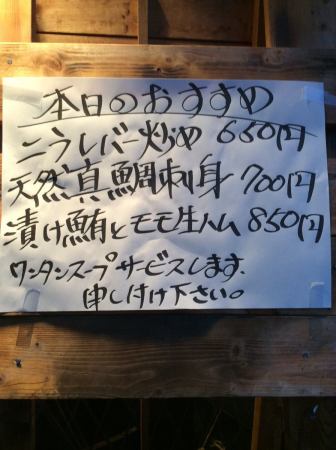 本日のおすすめ
ニラレバー炒め 650円
天然真鯛刺身 700円
漬け鮪とモモ生ハム 850円
ワンタンスープサービスします.
申し付け下さい。